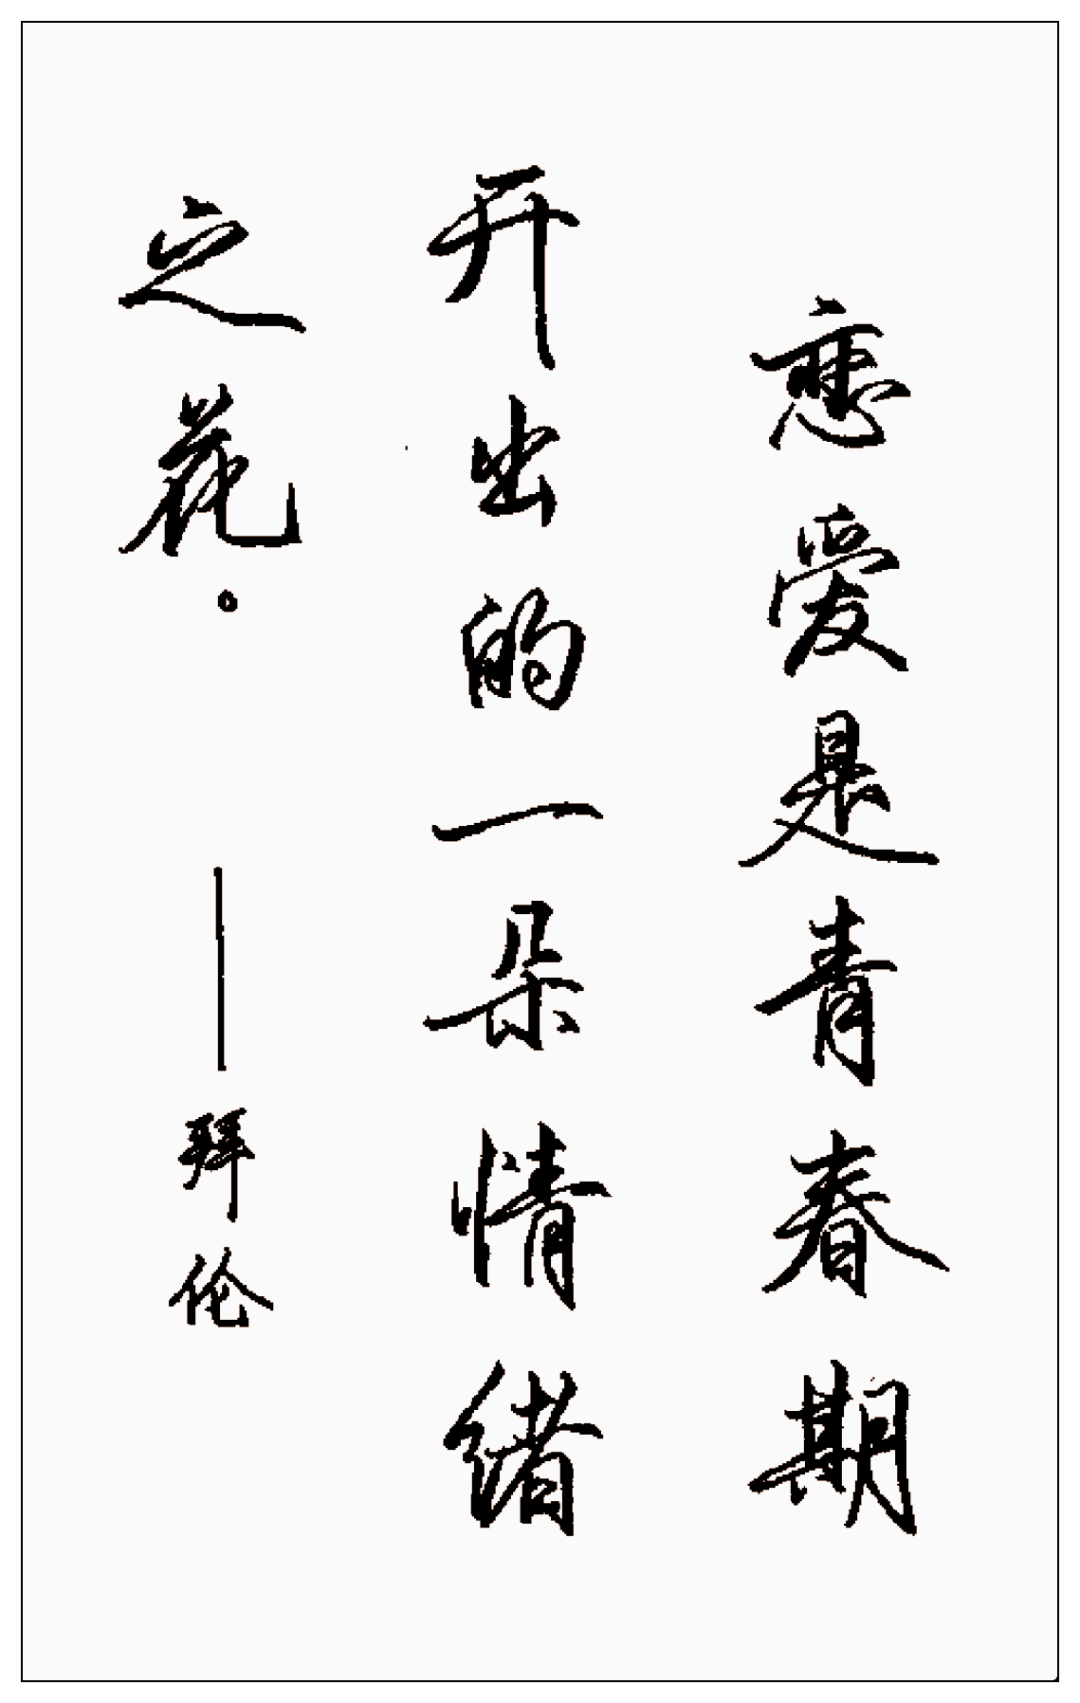 恋爱是青春期
开出的一朵情绪
之花。——拜伦